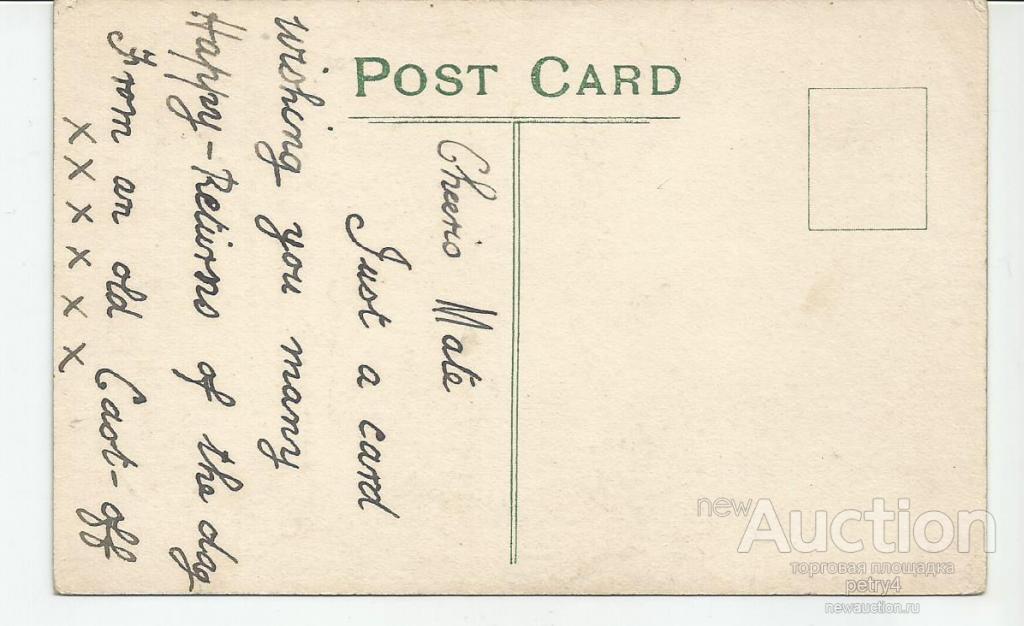 POST CARD
Cheerio Mate
Just a card
wishing you many
Happy-Returns of the day
From an old Cast-off
x x x x x x
newAuction
торговая площадка
petry4
newauction.ru